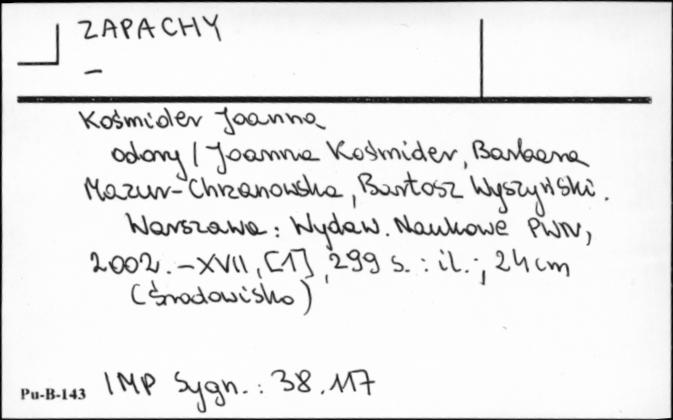 ZAPACHY
–
Kośmider Joanna
odory / Joanna Kośmider, Barbara
Mazur-Chrzanowska, Bartosz Wyszyński.
Warszawa : Wydaw. Naukowe PWN,
2002. – XVII, [1], 299 s. : il. ; 24 cm
(Środowisko)
Pu-B-143 IMP Sygn. : 38.117